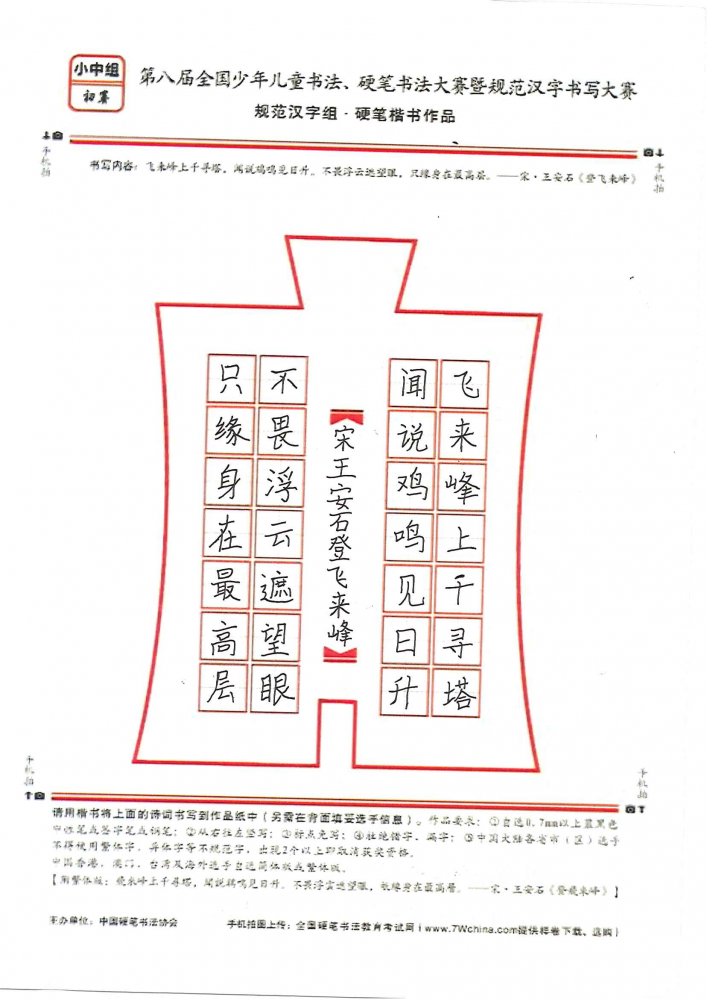 小中组
初赛
第八届全国少年儿童书法、硬笔书法大赛暨规范汉字书写大赛
规范汉字组·硬笔楷书作品
手机拍
手机拍
书写内容：飞来峰上千寻塔，闻说鸡鸣见日升。不畏浮云遮望眼，只缘身在最高层。——宋·王安石《登飞来峰》
飞来峰上千寻塔
闻说鸡鸣见日升
宋王安石登飞来峰
不畏浮云遮望眼
只缘身在最高层
手机拍
手机拍
请用楷书将上面的诗词书写到作品纸中（另需在背面填妥选手信息）。作品要求：①自选0.7mm以上蓝黑色
中性笔或签字笔或钢笔；②从右往左竖写；③标点免写；④杜绝错字、漏字；⑤中国大陆各省市（区）选手
不得使用繁体字、异体字等不规范字，出现2个以上即取消获奖资格。
中国香港、澳门、台湾及海外选手自选简体版或繁体版。
【附繁体版：飛來峰上千尋塔，聞說鷄鳴見日升。不畏浮雲遮望眼，祇緣身在最高層。——宋·王安石《登飛來峰》】
主办单位：中国硬笔书法协会
手机拍图上传：全国硬笔书法教育考试网 | www.7Wchina.com提供样卷下载、选购 |